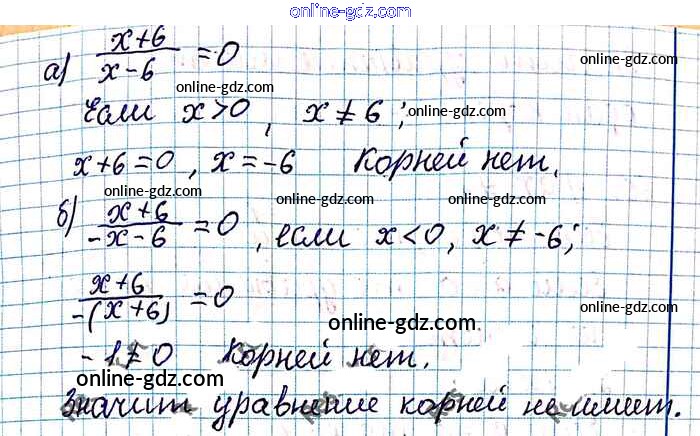 online-gdz.com
а) x+6 / x-6 = 0 online-gdz.com
online-gdz.com
Если x>0, x≠6; online-gdz.com
online-gdz.com
x+6=0, x=-6 Корней нет.
online-gdz.com online-gdz.com online-gdz.com
б) x+6 / -x-6 = 0, если x<0, x≠-6;
x+6 / -(x+6) = 0 online-gdz.com
online-gdz.com
-1≠0 Корней нет.
online-gdz.com online-gdz.com
Значит уравнение корней не имеет.